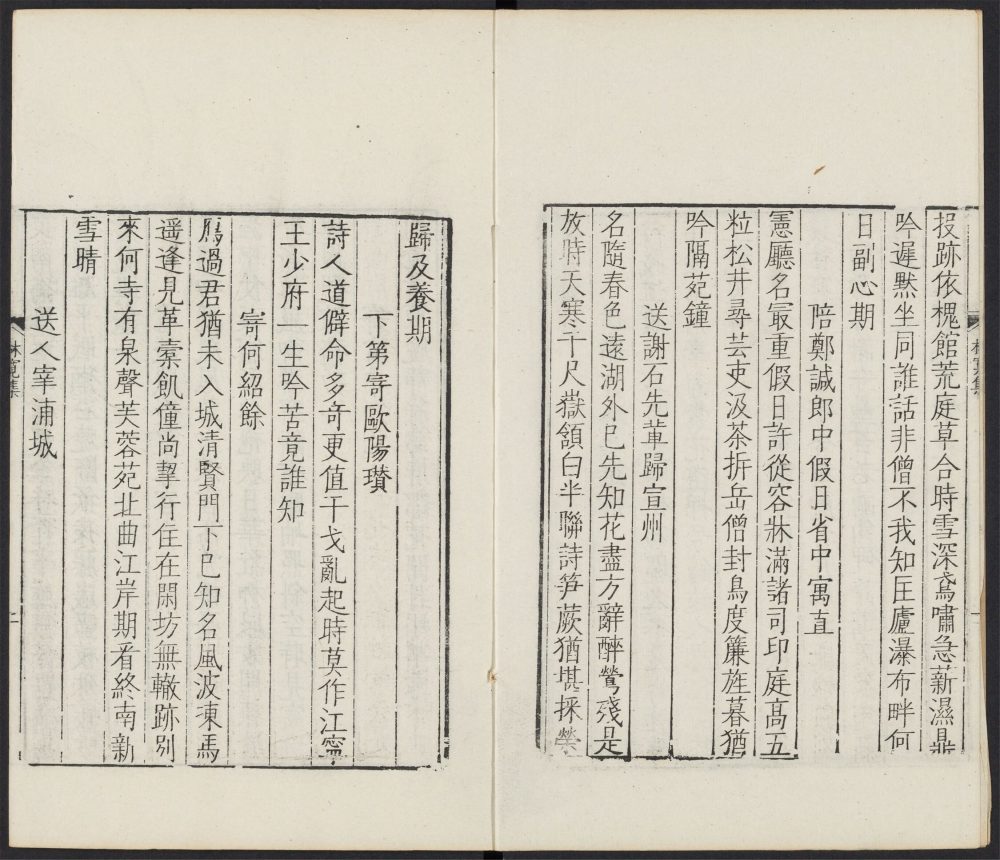 投跡依槐館荒庭草合時雪深鳶嘯急薪濕鼎
吟遲默坐同誰話非僧不我知匡廬瀑布畔何
日副心期
陪鄭諴郎中假日省中寓直
憲廳名最重假日許從容牀滿諸司印庭高五
粒松井尋芸吏汲茶拆岳僧封鳥度簾旌暮猶
吟隔苑鐘
送謝石先輩歸宣州
名隨春色遠湖外已先知花盡方辭醉鶯殘是
放時天寒千尺嶽頷白半聯詩笋蕨猶堪採榮
歸及養期
下第寄歐陽瓚
詩人道僻命多奇更值干戈亂起時莫作江寧
王少府一生吟苦竟誰知
寄何紹餘
鴈過君猶未入城清賢門下已知名風波凍馬
遥逢見革橐飢僮尚挈行住在閑坊無轍跡別
來何寺有泉聲芙蓉苑北曲江岸期看終南新
雪晴
送人宰浦城